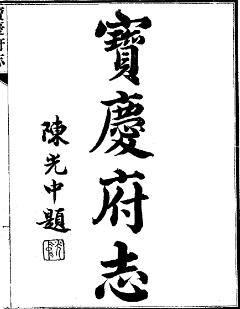 寶慶府志
陳光中題